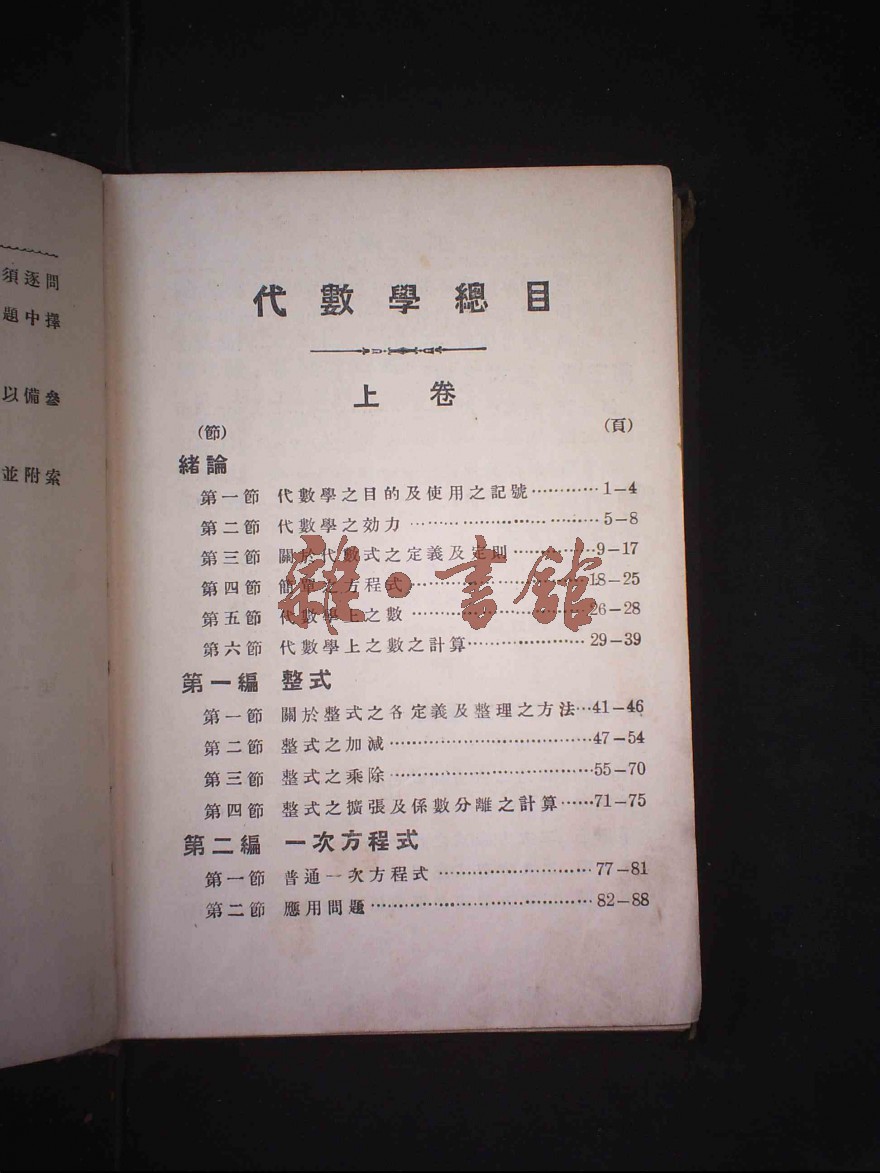 須逐問
題中擇
以備參
並附索
代數學總目
上卷
(節) (頁)
緒論
第一節 代數學之目的及使用之記號…………1–4
第二節 代數學之効力…………………5–8
第三節 關於代數式之定義及定則…………9–17
第四節 簡單之方程式…………………18–25
第五節 代數學上之數…………………26–28
第六節 代數學上之數之計算……………29–39
第一編 整式
第一節 關於整式之各定義及整理之方法…41–46
第二節 整式之加減…………………47–54
第三節 整式之乘除…………………55–70
第四節 整式之擴張及係數分離之計算……71–75
第二編 一次方程式
第一節 普通一次方程式………………77–81
第二節 應用問題…………………82–88
雜·書館